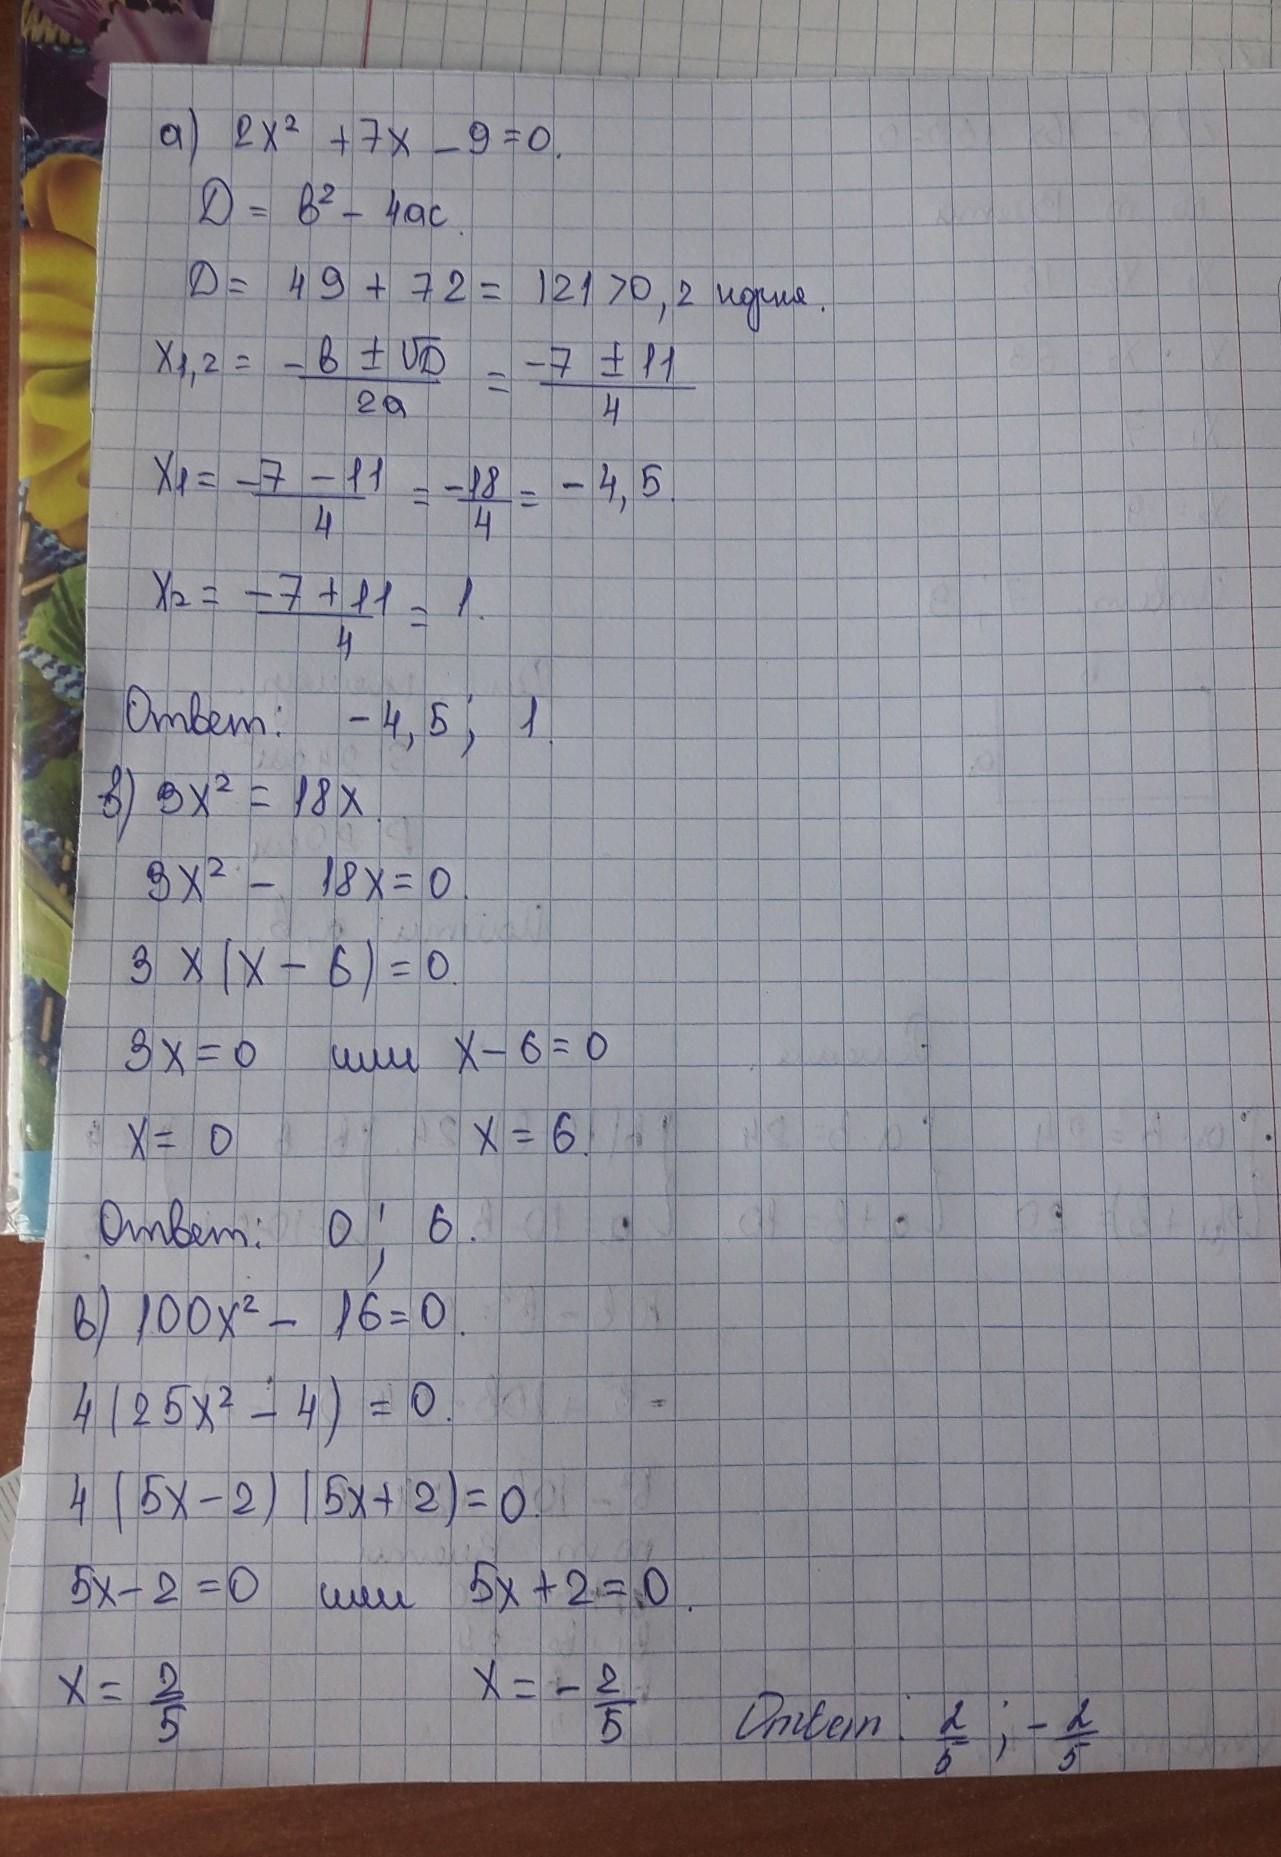 а) 2x² + 7x - 9 = 0.
D = b² - 4ac.
D = 49 + 72 = 121 > 0, 2 корня.
x1,2 = (-b ± √D)/2a = (-7 ± 11)/4
x1 = (-7 - 11)/4 = -18/4 = -4,5.
x2 = (-7 + 11)/4 = 1.
Ответ: -4,5; 1.
б) 3x² = 18x.
3x² - 18x = 0.
3x(x - 6) = 0.
3x = 0 или x - 6 = 0
x = 0 x = 6.
Ответ: 0; 6.
в) 100x² - 16 = 0.
4(25x² - 4) = 0.
4(5x - 2)(5x + 2) = 0.
5x - 2 = 0 или 5x + 2 = 0.
x = 2/5 x = -2/5 Ответ: 2/5; -2/5